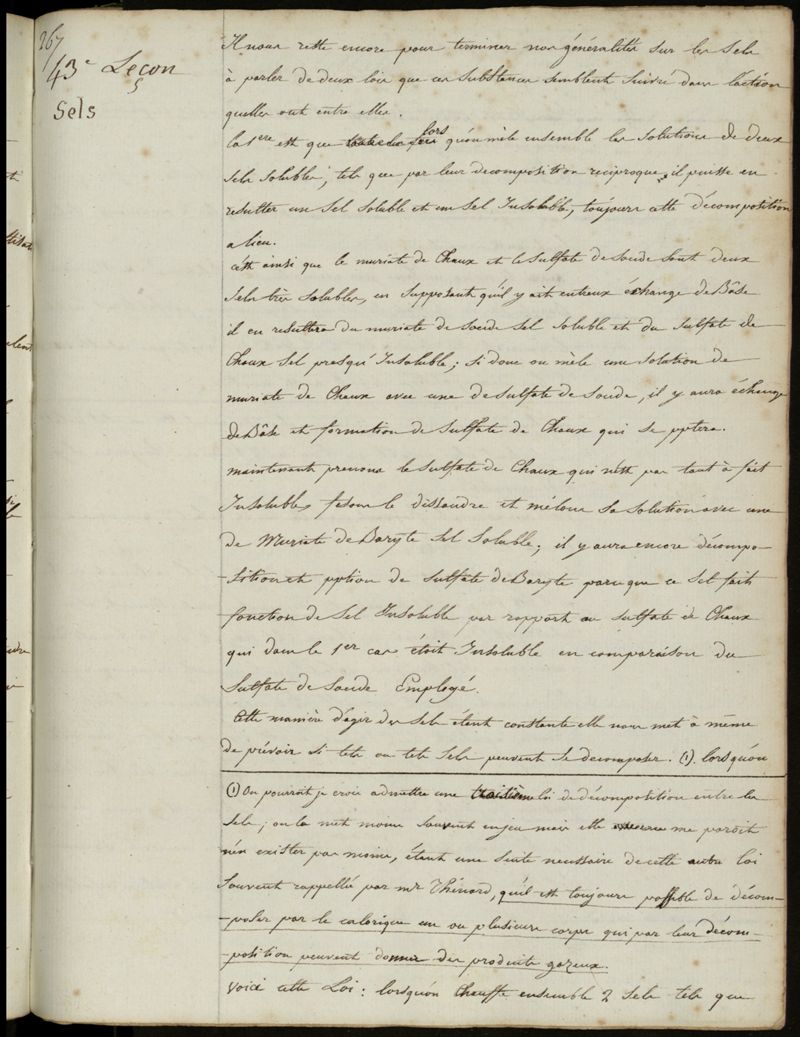 267
43e Leçon
Sels
Il nous reste encore pour terminer nos généralités sur les Sels
à parler de deux lois que ces substances semblent suivre dans l'action
quelles ont entre elles.
la 1ere est que lors qu'on mêle ensemble les solutions de deux
sels solubles, tels que par leur decomposition reciproque, il puisse en
resulter un Sel soluble et un Sel Insoluble, toujours cette décomposition
a lieu.
C'est ainsi que le muriate de Chaux et le Sulfate de Soude sont deux
Sels très solubles, en supposant qu'il y ait entreux échange de Bâse
il en resultera du muriate de Soude Sel soluble et du Sulfate de
Chaux Sel presqu'Insoluble; Si donc on mêle une solution de
muriate de Chaux avec une de Sulfate de Soude, il y aura échange
de Bâse et formation de Sulfate de Chaux qui se pptera.
maintenant prenons le Sulfate de Chaux qui n'est pas tout à fait
Insoluble, fesons le dissoudre et mélons sa solution avec une
de Muriate de Baryte Sel Soluble; il y aura encore décompo
-sition et pption de Sulfate de Baryte parceque ce Sel fait
fonction de Sel Insoluble par rapport au Sulfate de Chaux
qui dans le 1er cas étoit Insoluble en comparaison du
Sulfate de Soude Employé.
Cette manière d'agir des Sels étant constante elle nous met à même
de prévoir si tels ou tels Sels peuvent se decomposer. (1). lorsqu'on
(1) On pourroit je crois admettre une troisième loi de décomposition entre les
Sels; on la met moins souvent en jeu mais elle ne me paroît
n'en exister pas moins, étant une suite necessaire de cette autre loi
Souvent rappellée par mr Thénard, qu'il est toujours possible de décom-
-poser par le calorique un ou plusieurs corps qui par leur décom-
-position peuvent donner des produits gazeux.
Voici cette Loi: lorsqu'on Chauffe ensemble 2 Sels tels que